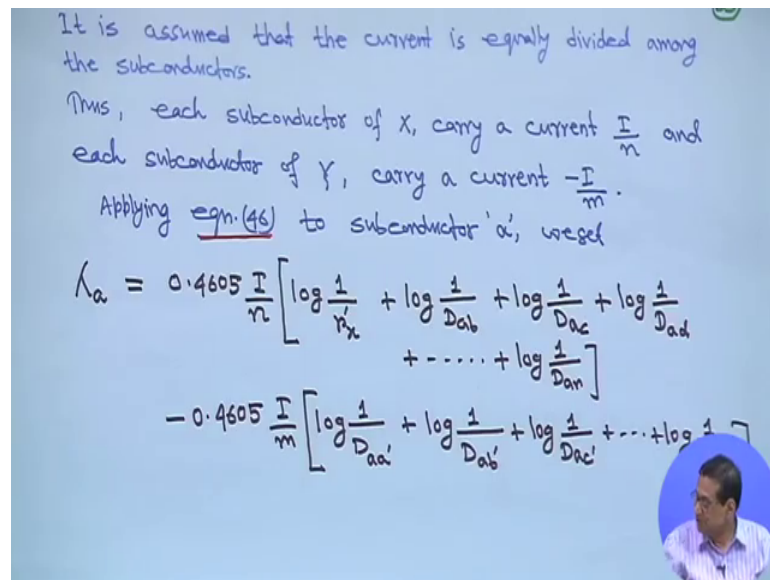 It is assumed that the current is equally divided among
the subconductors.
Thus, each subconductor of X, carry a current I/n and
each subconductor of Y, carry a current -I/m.
Applying eqn.(46) to subconductor 'a', we get
λa = 0.4605 I/n [log 1/r'x + log 1/Dab + log 1/Dac + log 1/Dad
+ ------ + log 1/Dan]
- 0.4605 I/m [log 1/Daa' + log 1/Dab' + log 1/Dac' + --- + log 1 ]